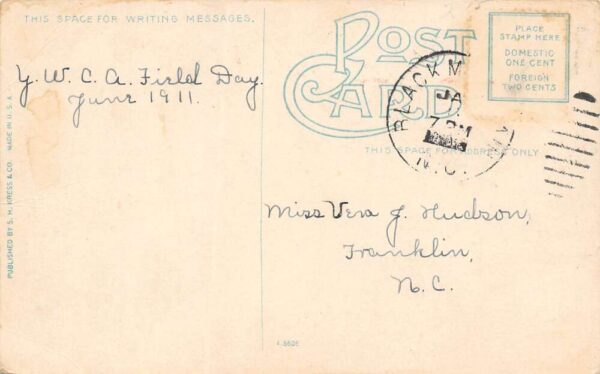 THIS SPACE FOR WRITING MESSAGES.
POST CARD
PLACE
STAMP HERE
DOMESTIC
ONE CENT
FOREIGN
TWO CENTS
Y. W. C. A. Field Day.
June 1911.
BLACK M
JA
7 PM
N.C.
THIS SPACE FOR ADDRESS ONLY
Miss Vera J. Hudson,
Franklin,
N.C.
PUBLISHED BY S. H. KRESS & CO. MADE IN U. S. A.